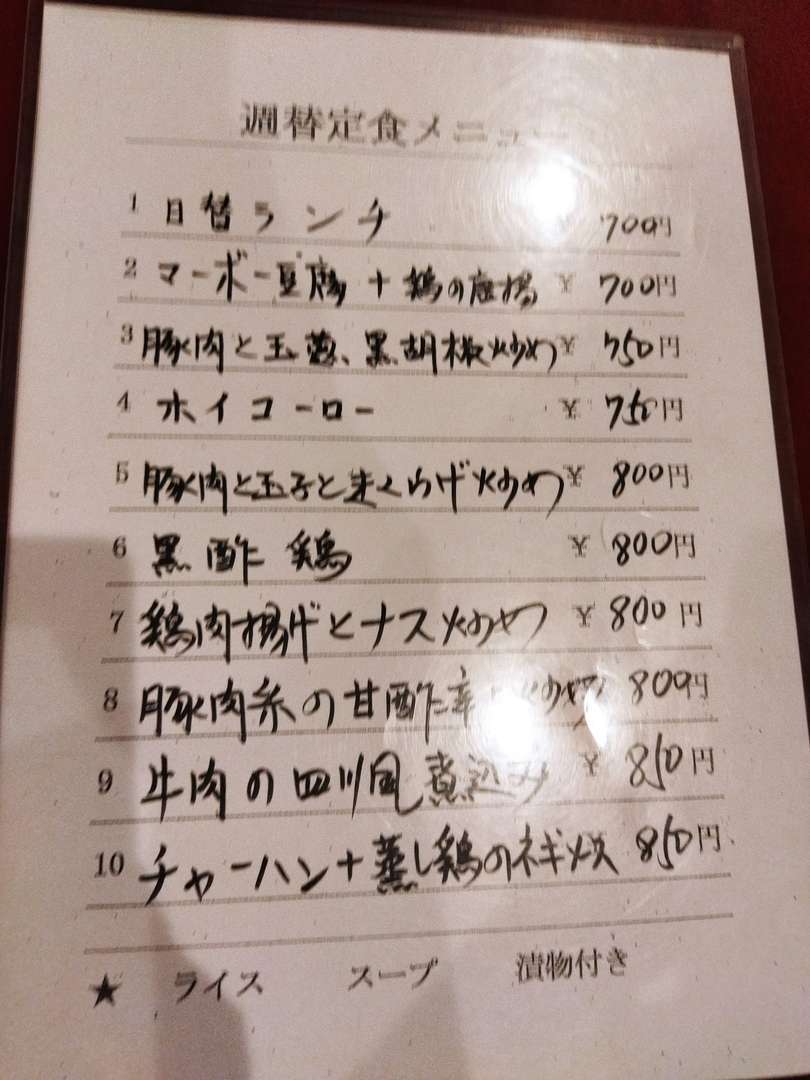 週替定食メニュー
1 日替ランチ 700円
2 マーボー豆腐+鶏の唐揚 ¥ 700円
3 豚肉と玉葱、黒胡椒炒め ¥ 750円
4 ホイコーロー ¥ 750円
5 豚肉と玉子ときくらげ炒め ¥ 800円
6 黒酢鶏 ¥ 800円
7 鶏肉揚げとナス炒め ¥ 800円
8 豚肉糸の甘酢辛 炒め 800円
9 牛肉の四川風煮込み ¥ 850円
10 チャーハン+蒸し鶏のネギ 850円
★ ライス スープ 漬物付き